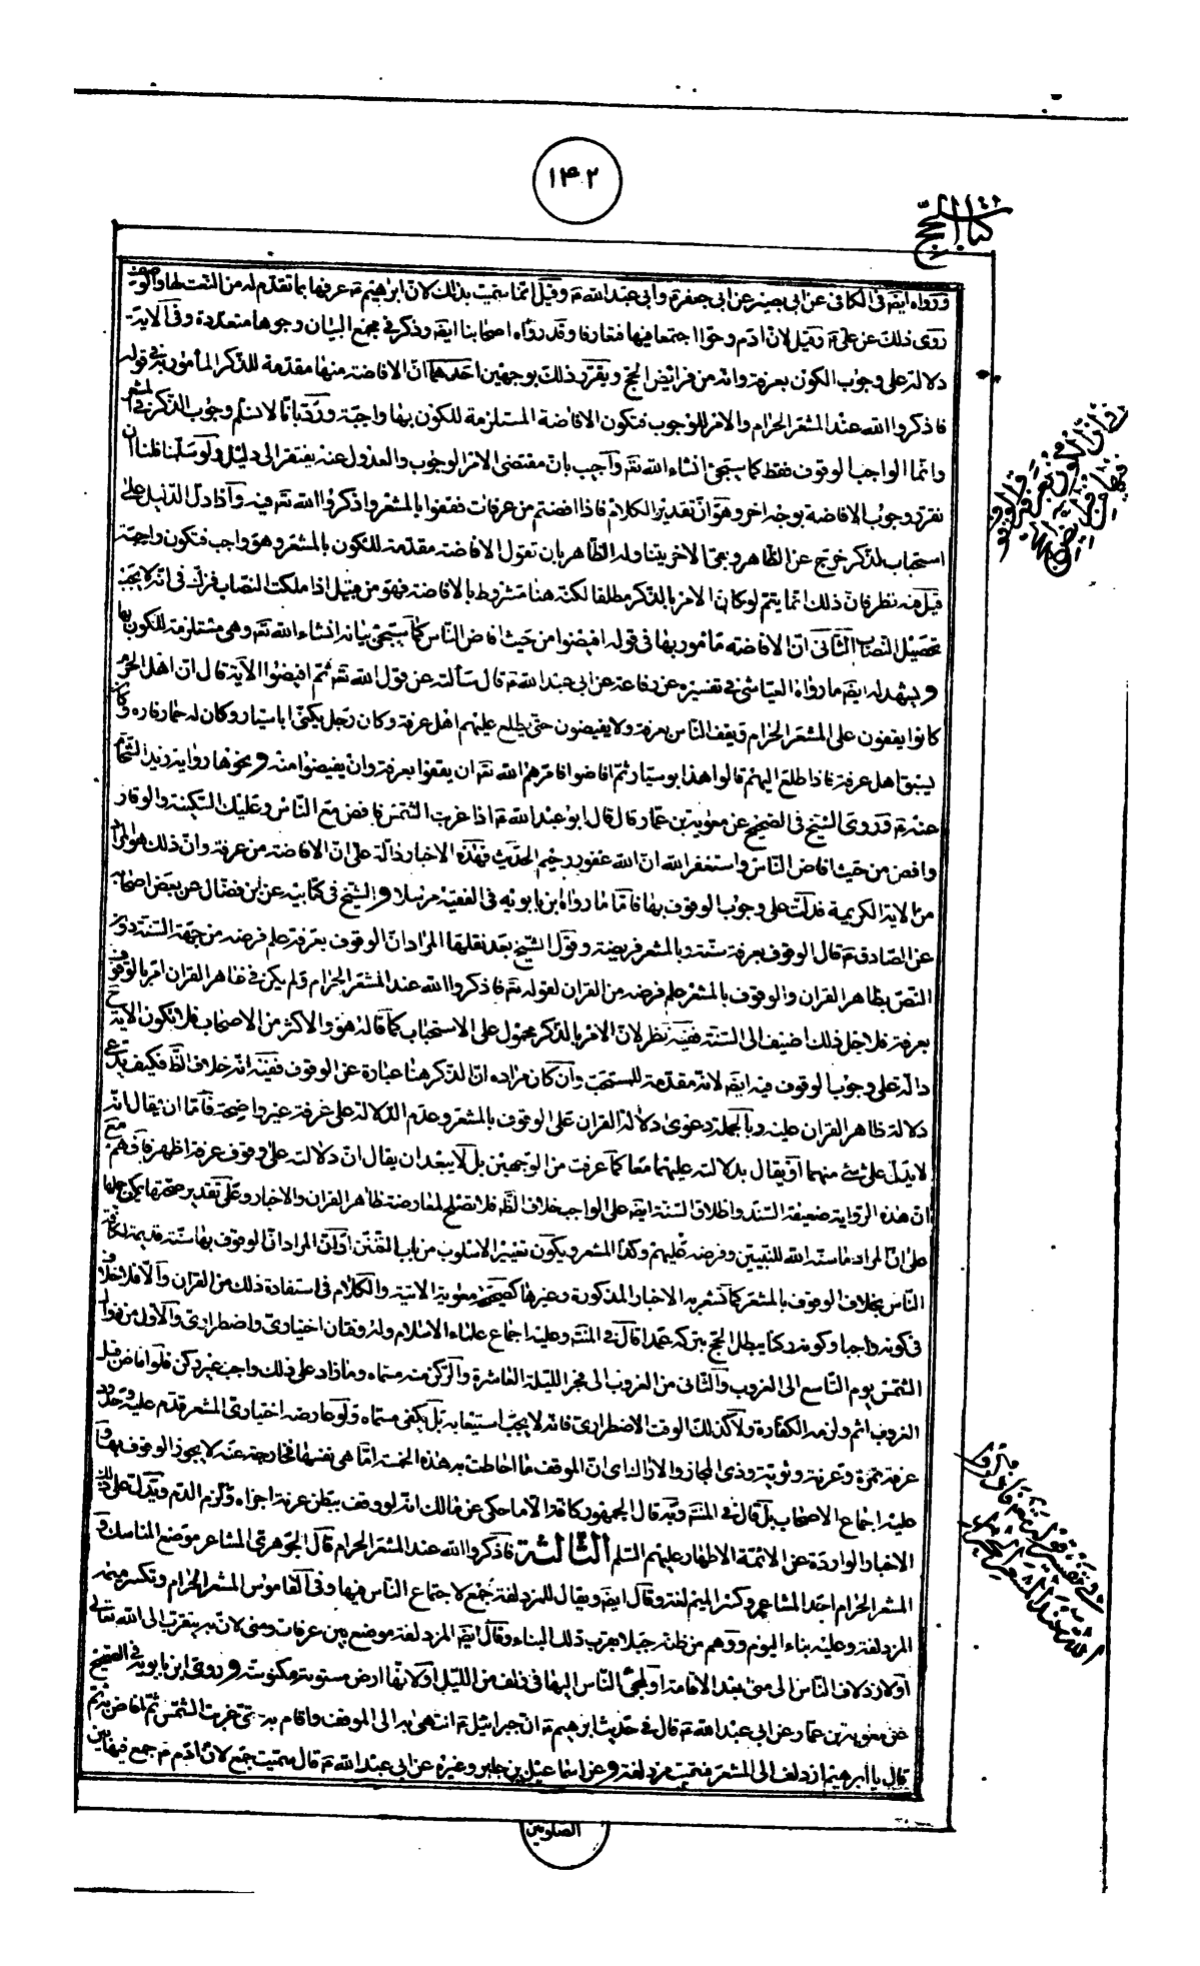 ١۴٢
كتاب الحج
ورواه ايضا فى الكافى عن ابى بصير عن ابى جعفر ع وابى عبد الله ع وقيل انما سميت بذلك لان ابراهيم ع عرفها بما تقدم له من النعت لها والوصف
روى ذلك عن على ع وقيل لان ادم وحوا اجتمعا فيها فتعارفا وقد رواه اصحابنا ايضا وذكر فى مجمع البيان وجوها متعددة وفى الاية
دلالة على وجوب الكون بعرفة وانه من فرايض الحج ويقرر ذلك بوجهين احدهما ان الافاضة منها مقدمة للذكر المأمور به فى قوله
فاذكروا الله عند المشعر الحرام والامر للوجوب فتكون الافاضة المستلزمة للكون بها واجبة ورد بانا لا نسلم وجوب الذكر فى المشعر
وانما الواجب الوقوف فقط كما سيجئ انشاء الله تعم واجيب بان مقتضى الامر الوجوب والعدول عنه يفتقر الى دليل ولو سلمنا قلنا ان
نقرر وجوب الافاضة بوجه اخر وهو ان تقدير الكلام فاذا افضتم من عرفات فقفوا بالمشعر واذكروا الله تعم فيه واذا دل الدليل على
استحباب لذكر خرج عن الظاهر وبقى الاخر يتناوله الظاهر بان تقول الافاضة مقدمة للكون بالمشعر وهو واجب فتكون واجبة
قيل فيه نظر فان ذلك انما يتم لو كان الامر بالذكر مطلقا لكنه هنا مشروط بالافاضة فهو من قبيل اذا ملكت النصاب فزك فى انه لا يجب
تحصيل النصاب الثانى ان الافاضة مأمور بها فى قوله افيضوا من حيث افاض الناس كما سيجئ بيانه انشاء الله تعم وهى مستلزمة للكون بها
ويشهد له ايضا ما رواه العياشى فى تفسيره عن رفاعة عن ابى عبد الله ع قال سألته عن قول الله تعم ثم افيضوا الاية قال ان اهل الحرم
كانوا يقفون على المشعر الحرام ويقف الناس بعرفة ولا يفيضون حتى يطلع عليهم اهل عرفة وكان رجل يكنى ابا سيار وكان له حمار فاره وكان
يسبق اهل عرفة فاذا طلع اليهم قالوا هذا بو سيار ثم افاضوا فامرهم الله تعم ان يقفوا بعرفة وان يفيضوا منه ونحوها رواية زيد الشحام
عنه ع وروى الشيخ فى الصحيح عن معوية بن عمار قال قال ابو عبد الله ع اذا غربت الشمس فافض مع الناس وعليك السكينة والوقار
وافض من حيث افاض الناس واستغفر الله ان الله غفور رحيم الحديث فهذه الاخبار دالة على ان الافاضة من عرفة وان ذلك هو المراد
من الاية الكريمة فدلت على وجوب الوقوف بها فاما ما رواه بن بابويه فى الفقيه مرسلا والشيخ فى كتابيه عن ابن فضال عن بعض اصحابه
عن الصادق ع قال الوقوف بعرفة سنة وبالمشعر فريضة وقول الشيخ بعد نقلها المراد ان الوقوف بعرفة علم فرضه من جهة السنة دون
النص بظاهر القران والوقوف بالمشعر علم فرضه من القران لقوله تعم فاذكروا الله عند المشعر الحرام ولم يكن فى ظاهر القران امر بالوقوف
بعرفة فلاجل ذلك اضيف الى السنة ففيه نظر لان الامر بالذكر محمول على الاستحباب كما قاله هو والاكثر من الاصحاب فلا تكون الاية ح
دالة على وجوب الوقوف فيه ايضا لانه مقدمة للمستحب وان كان مراده ان الذكر هنا عبارة عن الوقوف ففيه انه خلاف الظ فكيف يدعى
دلالة ظاهر القران عليه وبالجملة دعوى دلالة القران على الوقوف بالمشعر وعدم الدلالة على عرفة غير واضحة فاما ان يقال انه
لا يدل على شئ منهما او يقال بدلالته عليهما معا كما عرفت من الوجهين بل لا يبعد ان يقال ان دلالته على وقوف عرفة اظهر فافهم مع
ان هذه الرواية ضعيفة السند واطلاق السنة ايضا على الواجب خلاف الظ فلا تصلح لمعارضة ظاهر القران والاخبار وعلى تقدير صحتها يمكن حملها
على ان المراد ما سنه الله للنبيين وفرضه عليهم وكذا المشعر ويكون تغيير الاسلوب من باب التفنن او لان المراد ان الوقوف بها سنة قديمة لكافة
الناس بخلاف الوقوف بالمشعر كما تشعر به الاخبار المذكورة وغيرها كصحيحة معوية الاتية والكلام فى استفادة ذلك من القران والا فلا خلاف
فى كونه واجبا وكونه ركنا يبطل الحج بتركه عمدا قال فى المنتهى وعليه اجماع علماء الاسلام وله وقتان اختيارى واضطرارى والاول من زوال
الشمس يوم التاسع الى الغروب والثانى من الغروب الى فجر الليلة العاشرة والركن منه مسماه وما زاد على ذلك واجب غير ركن فلو افاض قبل
الغروب اثم ولزمه الكفارة ولا كذلك الوقت الاضطرارى فانه لا يجب استيعابه بل يكفى مسماه ولو عارضه اختيارى المشعر قدم عليه وحدود
عرفة نمرة وعرنة وثوية وذى المجاز والاراك اى ان الموقف ما احاطت به هذه الخمسة اما هى نفسها فخارجة عنه لا يجوز الوقوف بها و
عليه اجماع الاصحاب بل قال فى المنتهى وبه قال الجمهور كافة الا ما حكى عن مالك انه لو وقف ببطن عرنة اجزاه ولزم الدم ويدل على ذلك
الاخبار الواردة عن الائمة الاطهار عليهم السلم الثالثة فاذكروا الله عند المشعر الحرام قال الجوهرى المشاعر موضع المناسك و
المشعر الحرام احد المشاعر وكسر الميم لغة وقال ايضا ويقال للمزدلفة جمع لاجتماع الناس فيها وفى القاموس المشعر الحرام وتكسر ميمه
المزدلفة وعليه بناء اليوم ووهم من ظنه جبلا بقرب ذلك البناء وقال ايضا المزدلفة موضع بين عرفات ومنى لانه يتقرب الى الله تعالى
او لازدلاف الناس الى منى بعد الافاضة او لمجئ الناس اليها فى زلف من الليل او لانها ارض مستوية مكنوسة وروى ابن بابويه فى الصحيح
عن معوية بن عمار عن ابى عبد الله ع قال فى حديث ابرهيم ع ان جبرائيل ع انتهى به الى الموقف واقام به حتى غربت الشمس ثم افاض به ثم
قال يا ابرهيم ازدلف الى المشعر فسميت مزدلفة وعن اسماعيل بن جابر وغيره عن ابى عبد الله ع قال سميت جمع لان ادم ع جمع فيها بين
الصلوتين